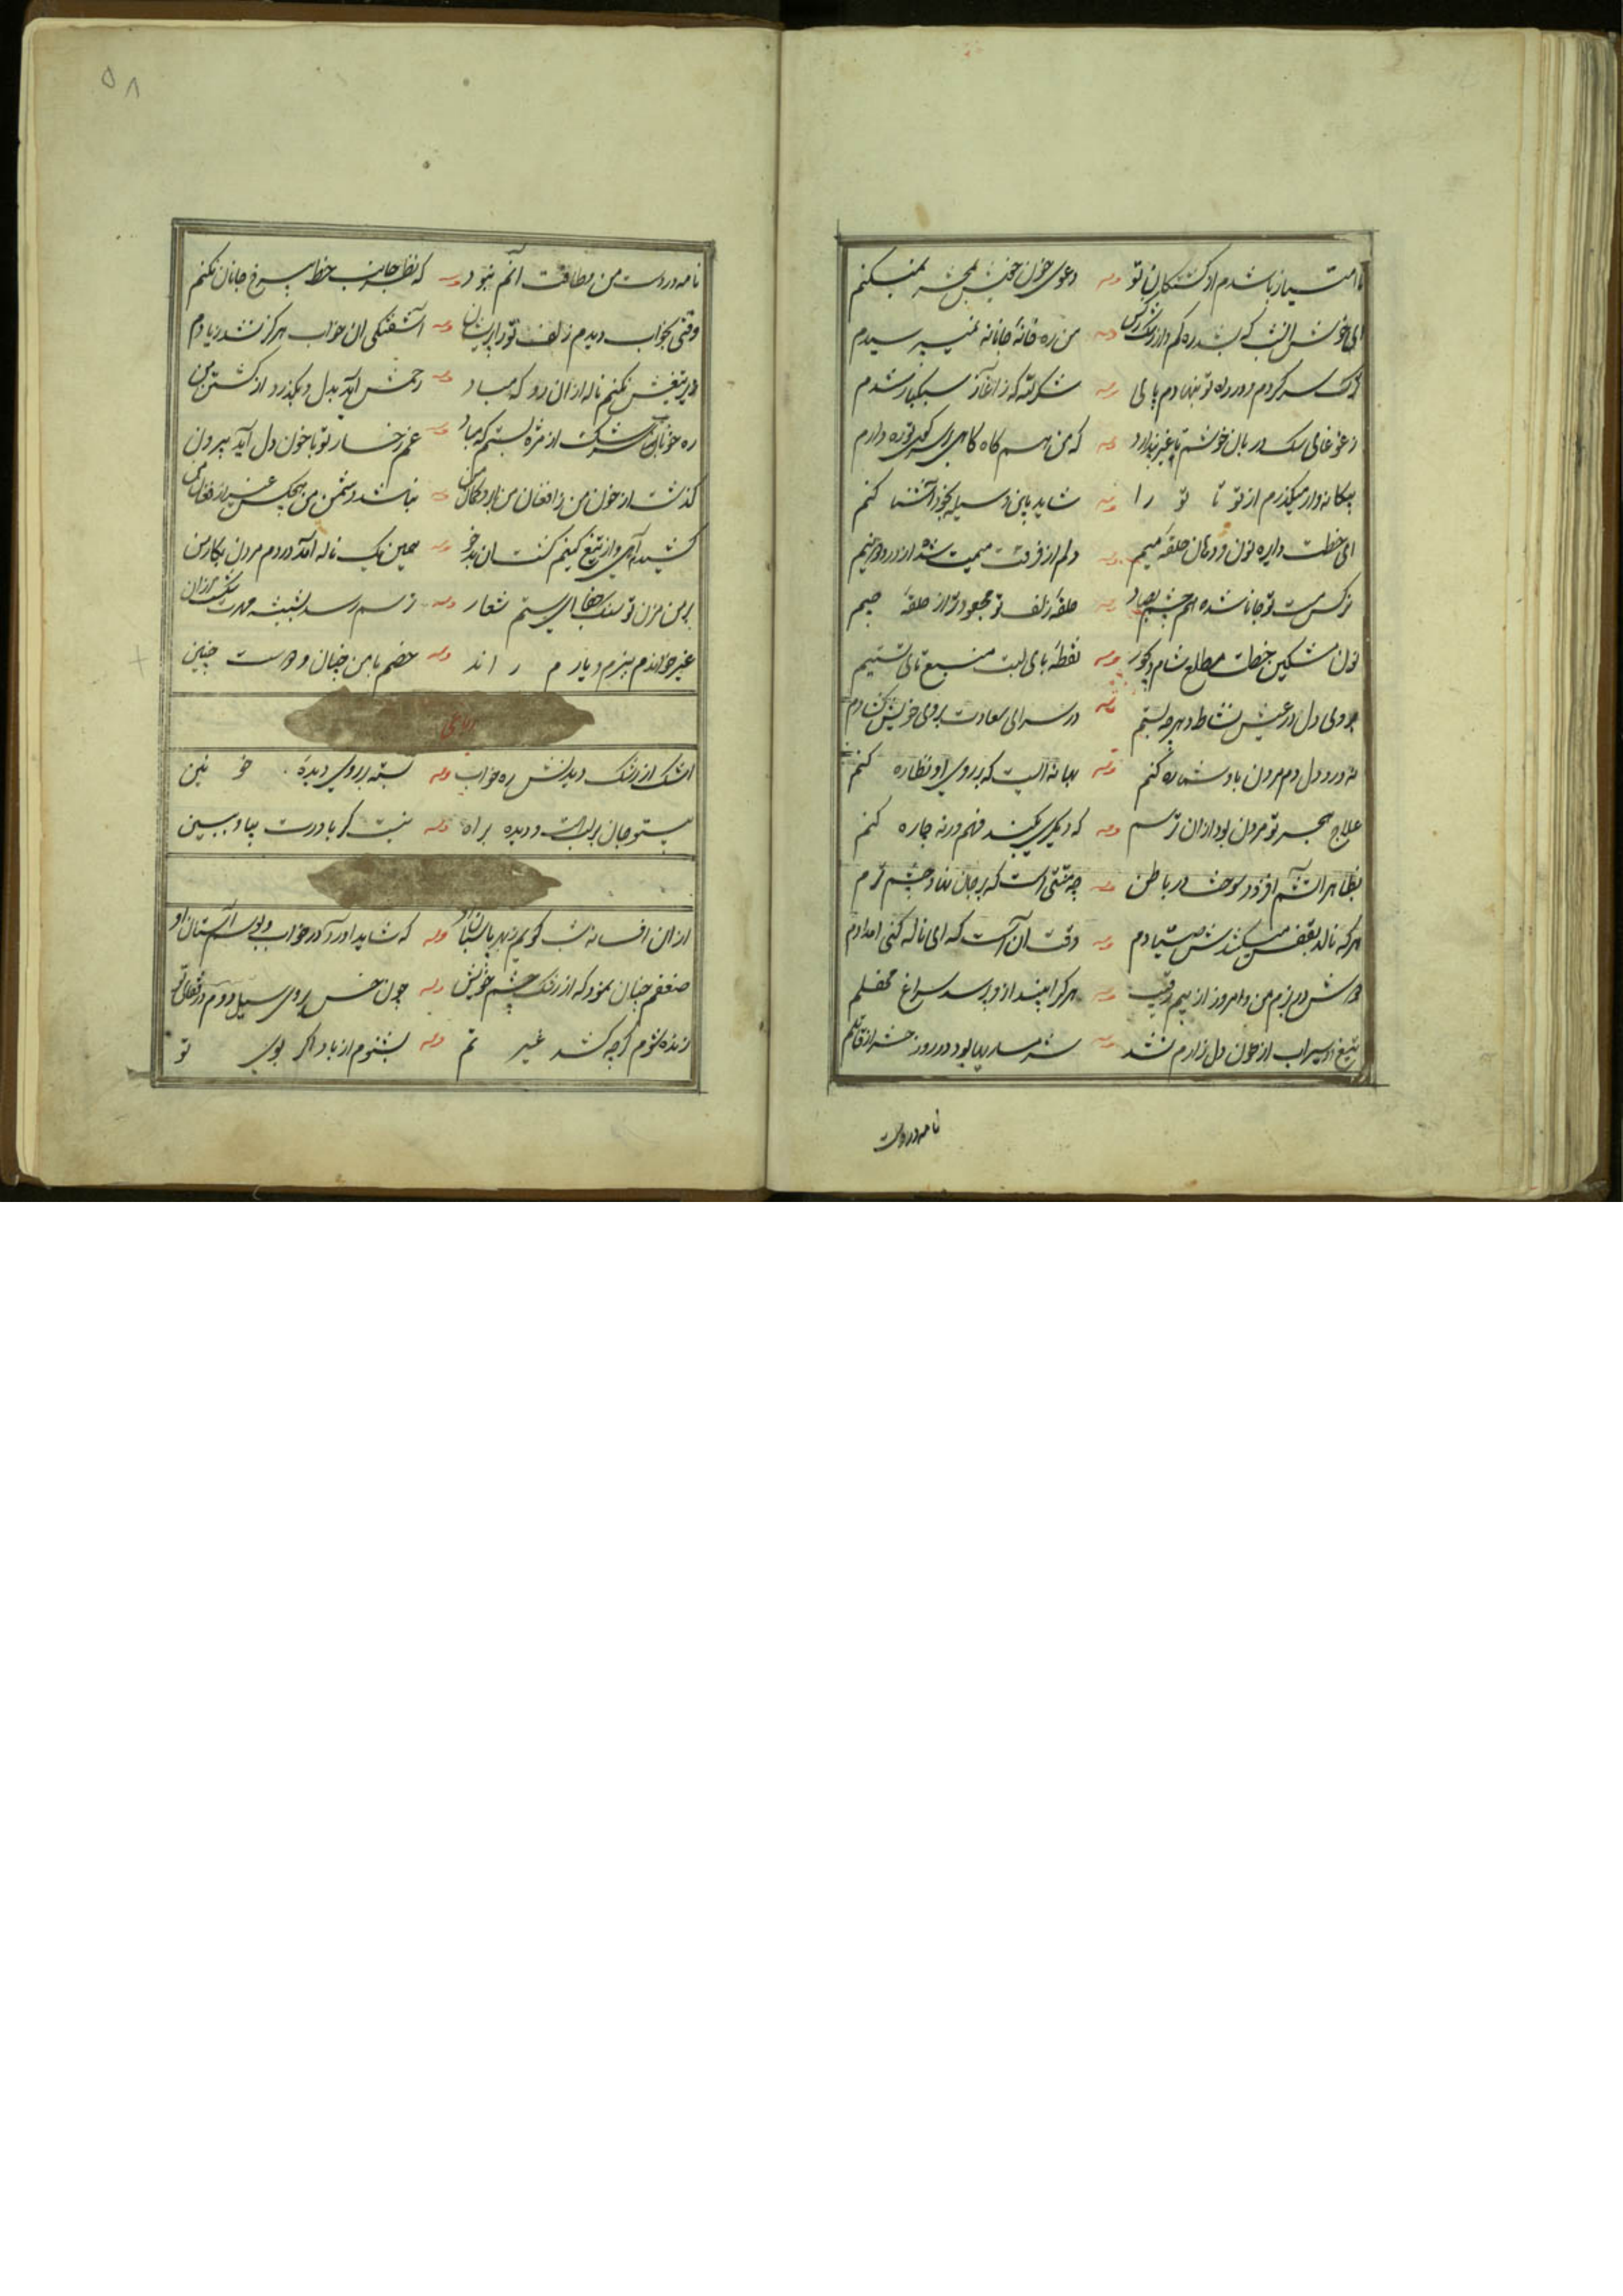 تا امتیاز باشدم از کشتگان تو وله دعوی خون خویش بمحشر نمیکنم
ای خوش انشب که شد ره کم و از رشک وله من ره خانهٔ جانانه نمیپرسیدم
سر کردم و در راه تو ننهادم پای وله شکر لله که ز آغاز سبکبار شدم
ز غوغای سگ در بان خوشم تا غیر پندارد وله که من هم گاه گاهی بر سر کوی تو ره دارم
بیگانه‌وار میگذرم از تو تا تو را وله شاید باین وسیله بخود آشنا کنم
ای خطت دایره نون و دهان حلقهٔ میم وله دلم از فرقت میمت شده از درد دو نیم
نرگس مست تو جانا شده هم چشم بصاد وله حلقهٔ زلف تو مجعودتر از حلقهٔ جیم
نون مشکین خطت مطلع شام دیجور وله نقطهٔ بای لبت منبع تای تسنیم
بروی دل در عیش و نشاط دهر چو بستم وله در سرای سعادت بروی خویش گشادم
نه درد دل دم مردن باو شماره کنم وله بهانه ایست که بر روی او نظاره کنم
علاج هجر تو مردن بود ازان ترسم وله که دیگری نکند فهم ورنه چاره کنم
بظاهر آتشم افزود سوخت در باطن وله چه منتی است که بر جان نهاد چشم ترم
هرکه نالد بقفس میکندش صیادم وله وقت آن است که ای ناله کنی امدادم
دوش در بزم من و امروز از بیم رقیب وله هر کرا بیند ازو پرسد سراغ محفلم
تیغ او سیراب از خون دل زارم نشد وله شرمسار بیابود در روز حشر از قاتلم
نامه در دست
۵۸
نامه در دست من و طاقت آنم نبود وله که نظر جانب خط بیرخ جانان نکنم
وقتی بخواب دیدم زلف تو را پریشان وله آشفتگی ان خواب هرگز نشد ز یادم
زیر تیغش نکنم ناله از ان رو که مباد وله رحمش آید بدل و بگذرد از کشتن من
ره خونابهٔ سرشکت از مژه بستم که مباد وله غم رخسار تو با خون دل آید بیرون
گذشت از خون من ز افغان من وله نباشد دشمن من هیچکس غیر از فغان من
کشید آهی و از تیغ کینم کشت ان بدخو وله همین یک ناله آمد در دم مردن بکار من
بر من مزن تو سنگ جفا ای ستم شعار وله ترسم رسد بشیشه مهرت
غیر خواندم ببزم و یارم راند وله خصم با من چنان و دوست چنین
رباعی
اشک از رشک دیدنش ره خواب وله بسته بر روی دیدهٔ خونین
بیتو جان بر لب است و دیده براه وله نیست گر باورت بیا و ببین
از ان افسانه شب گویم بهر پاسبان او وله که شاید اورا در خواب و بوسم آستان او
ضعفم چنان نمود که از رشک چشم خویش وله چون خس بروی سیل دوم در قفای تو
زنده شوم گرچه کشد غیر تم وله بشنوم از باد اگر بوی تو